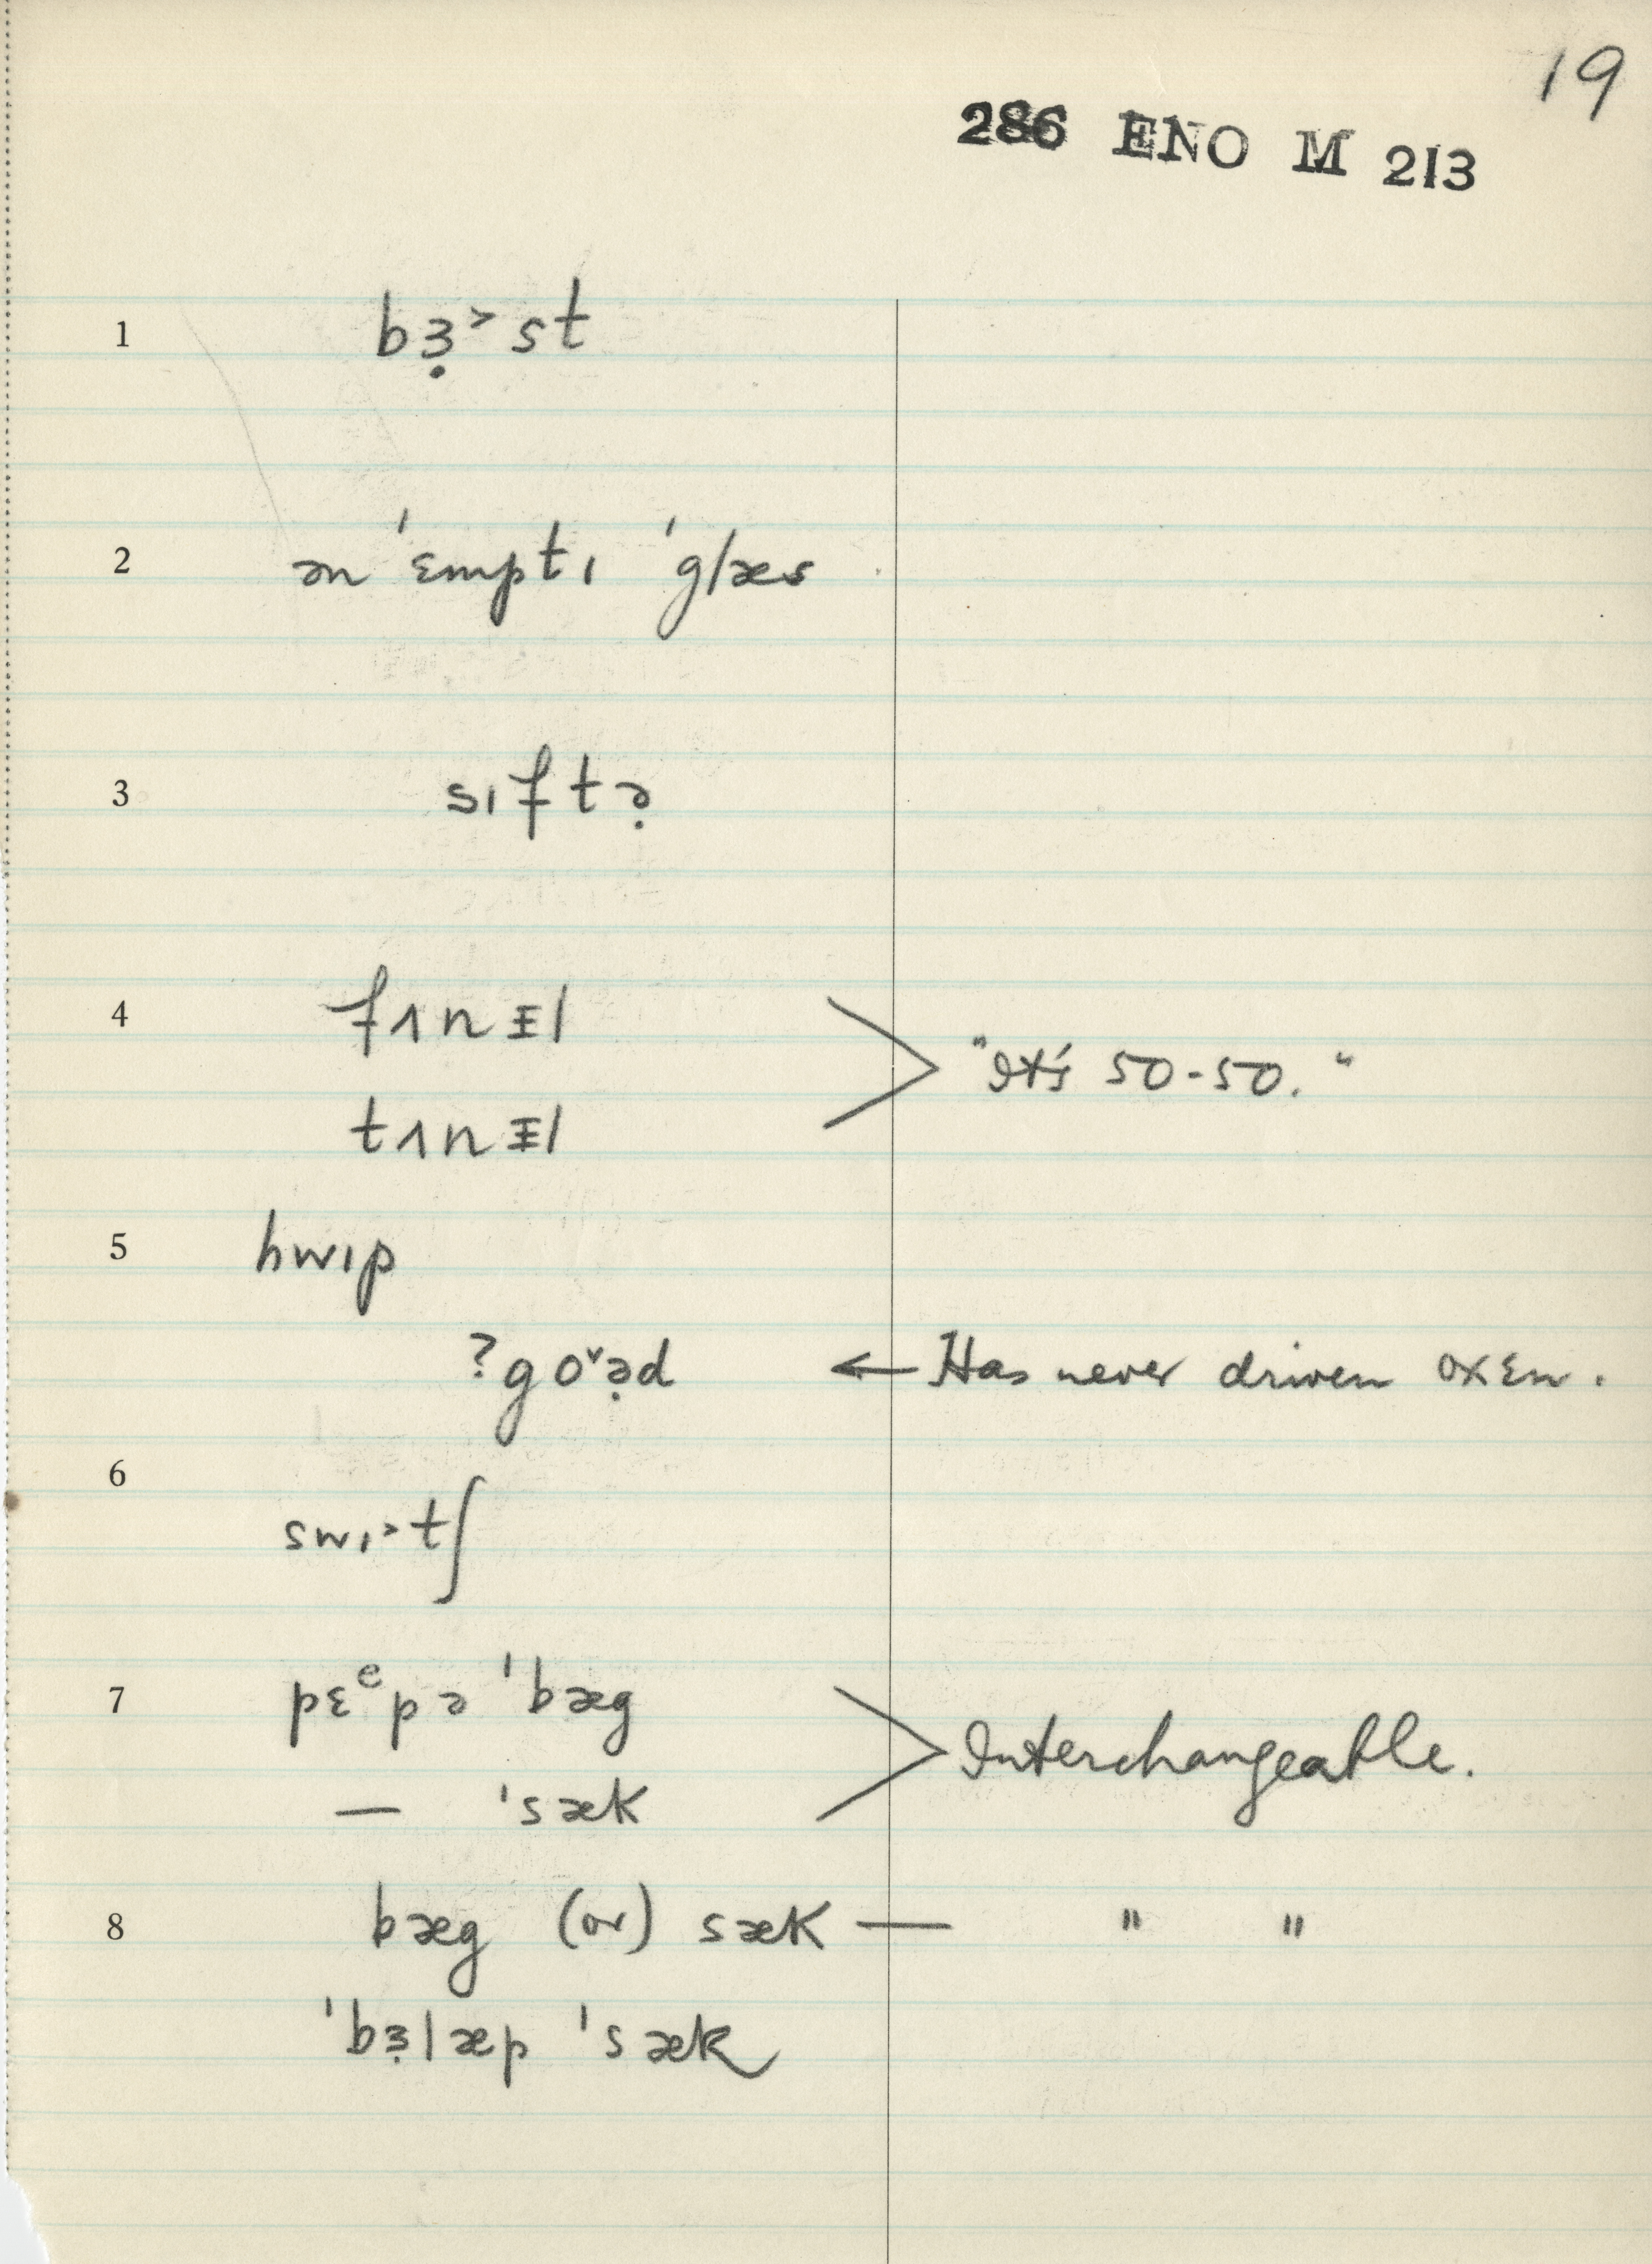 19
286 ENO M 213
1 bɜ̣˃st
2 ən 'ɛmptɪ 'glæs
3 sɪftə̣
4 fʌnᵻl
"It's 50-50."
tʌnᵻl
5 hwɪp
?goˇə̣d ← Has never driven oxen.
6
swɪ˃tʃ
7 pɛᵊpə 'bæg
Interchangeable.
— 'sæk
8 bæg (or) sæk — " "
'bɜ̣læp 'sæk